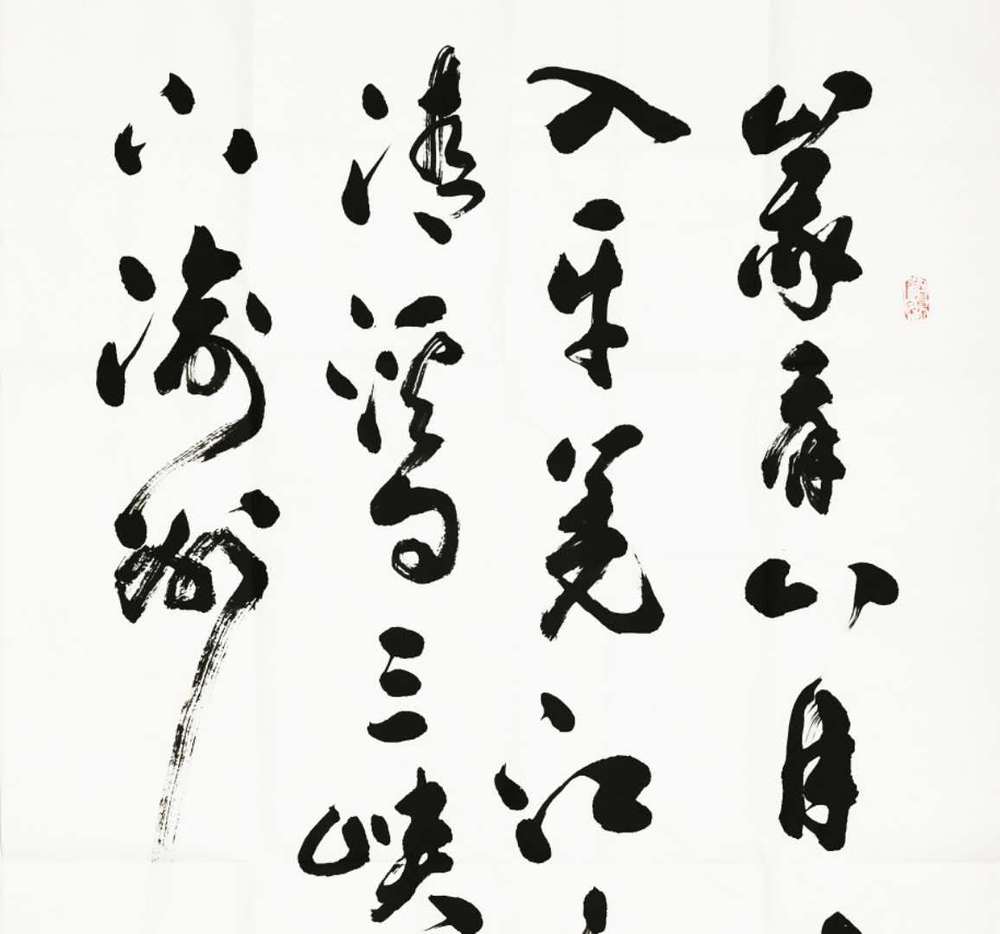 峩眉山月
入平羌江
清溪向三峡
下渝州